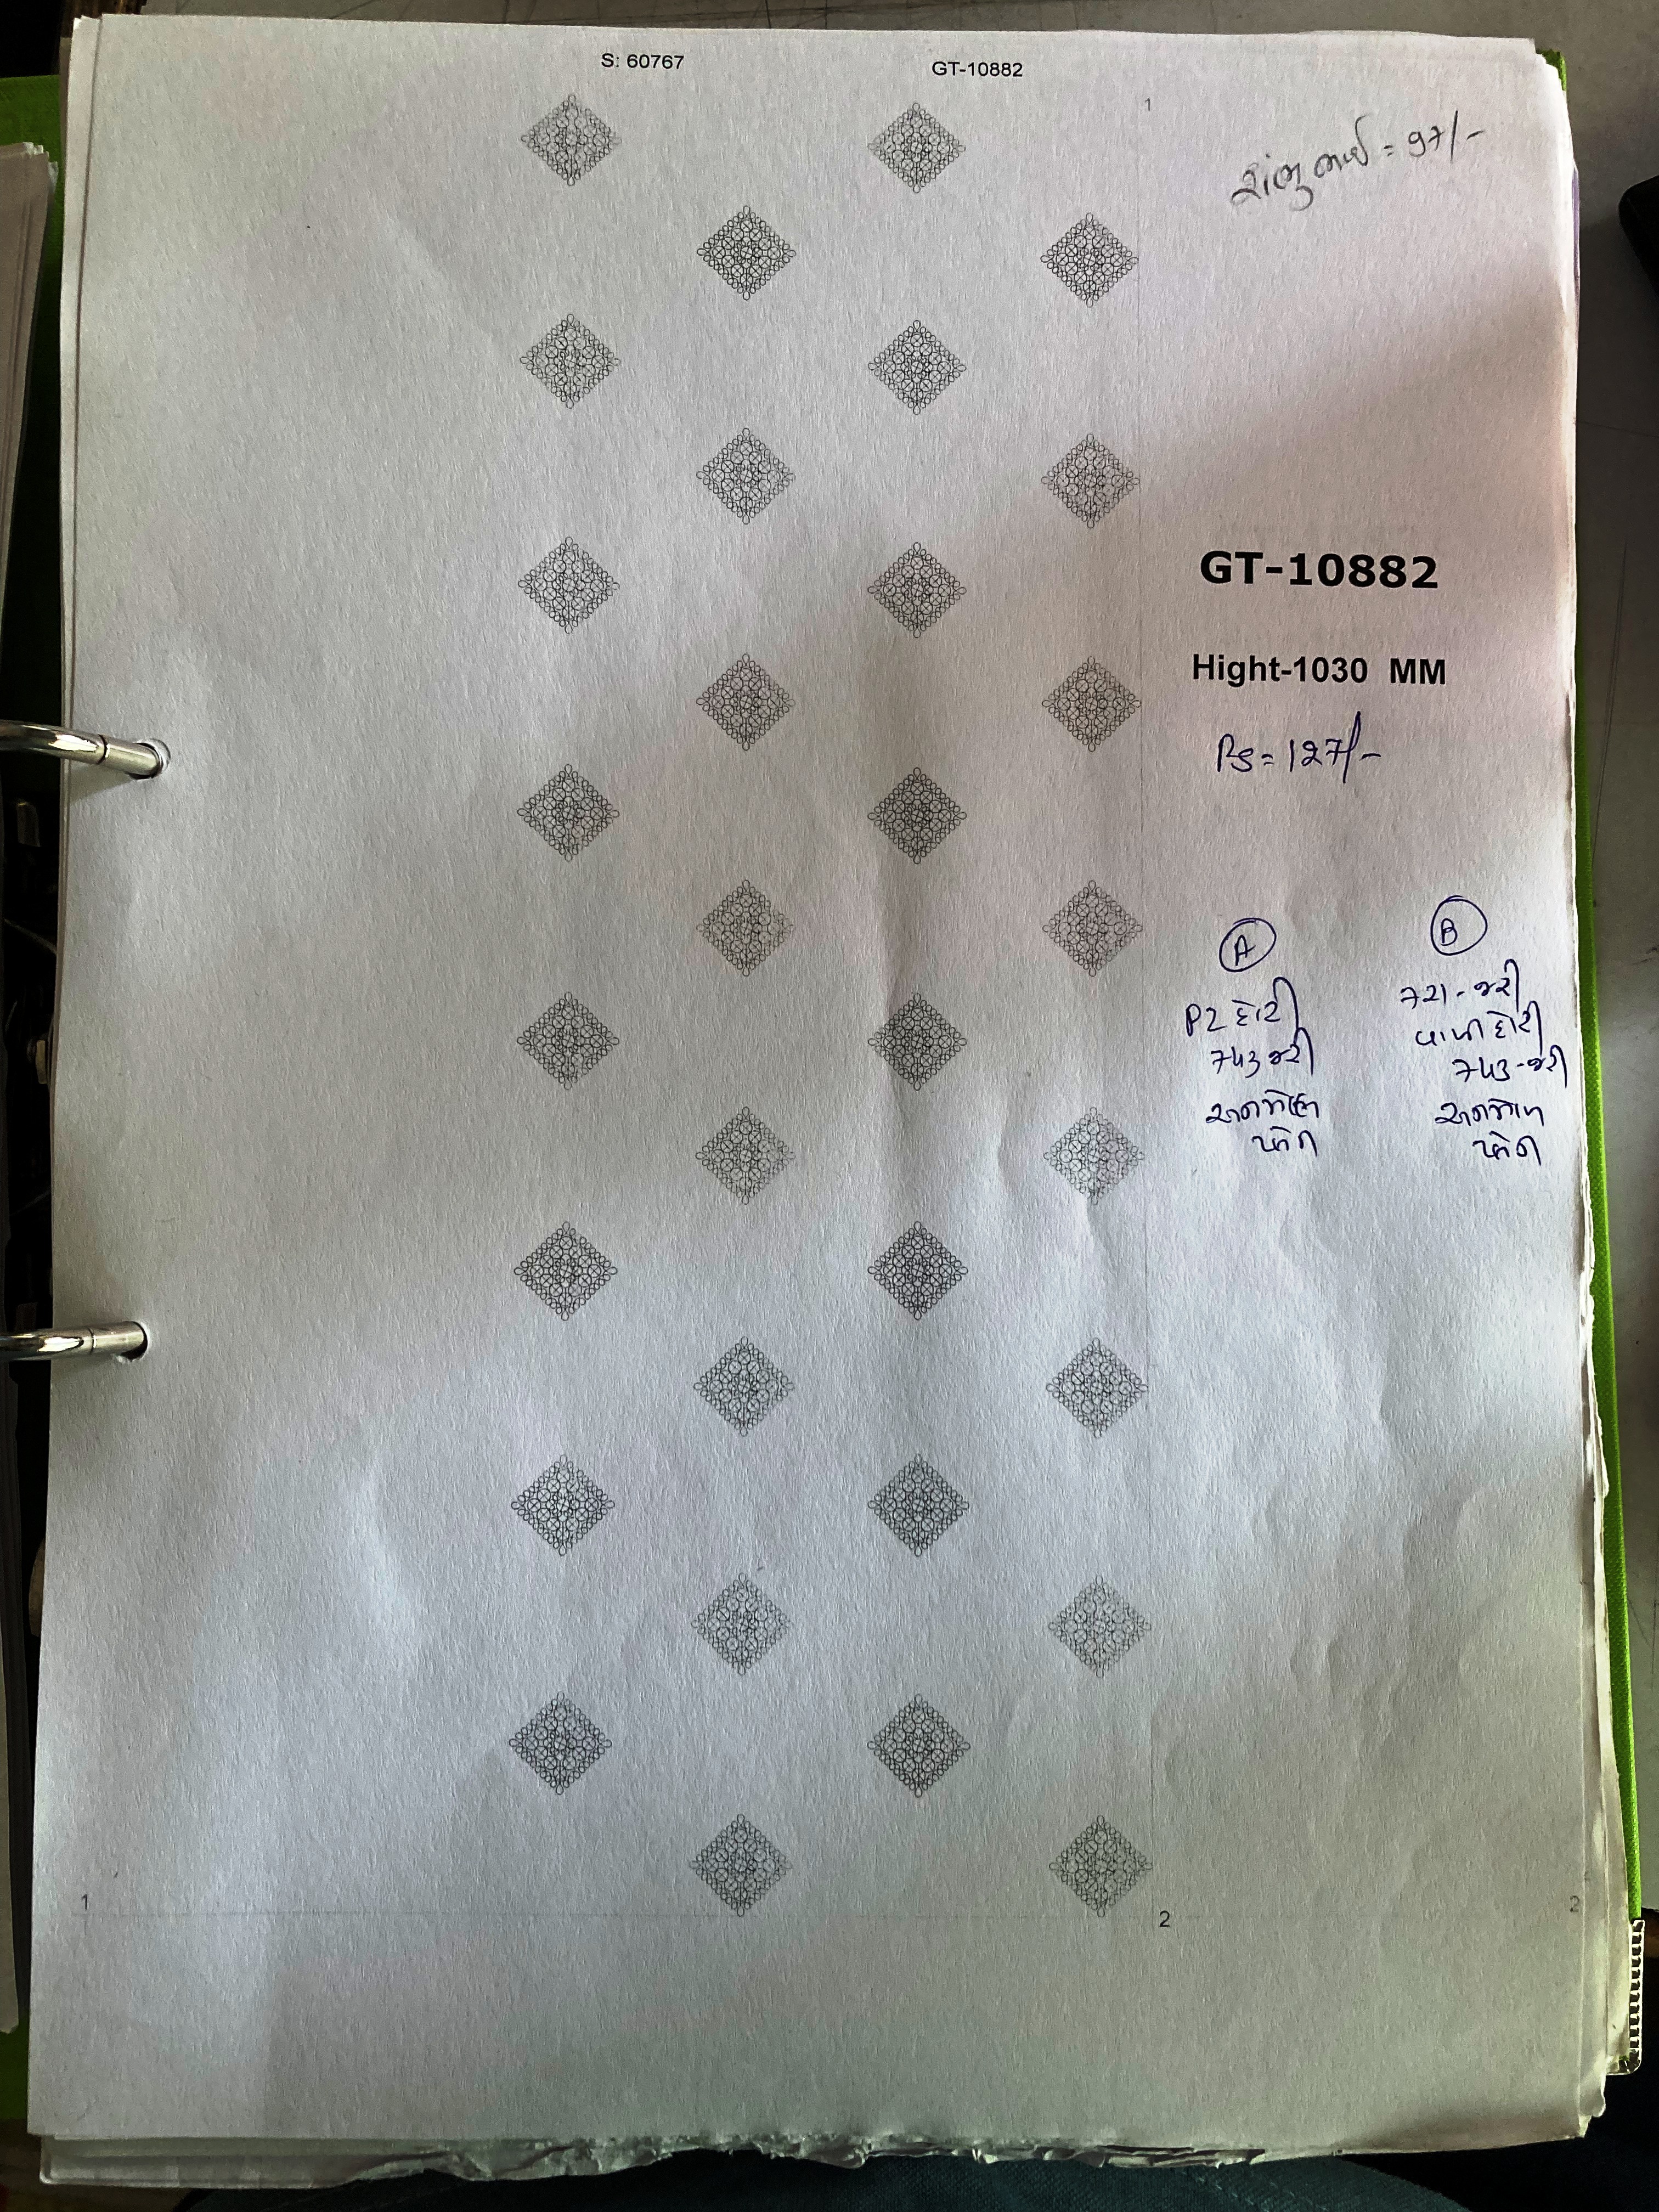 S: 60767 GT-10882
1
શંભુ ભાઈ = 97/-
GT-10882
Hight-1030 MM
PS = 127/-
A
P2 દોરી
743 જરી
અનમોલ
B
721 - જરી
પાપી દોરી
743 - જરી
અનમોલ
1 2 2